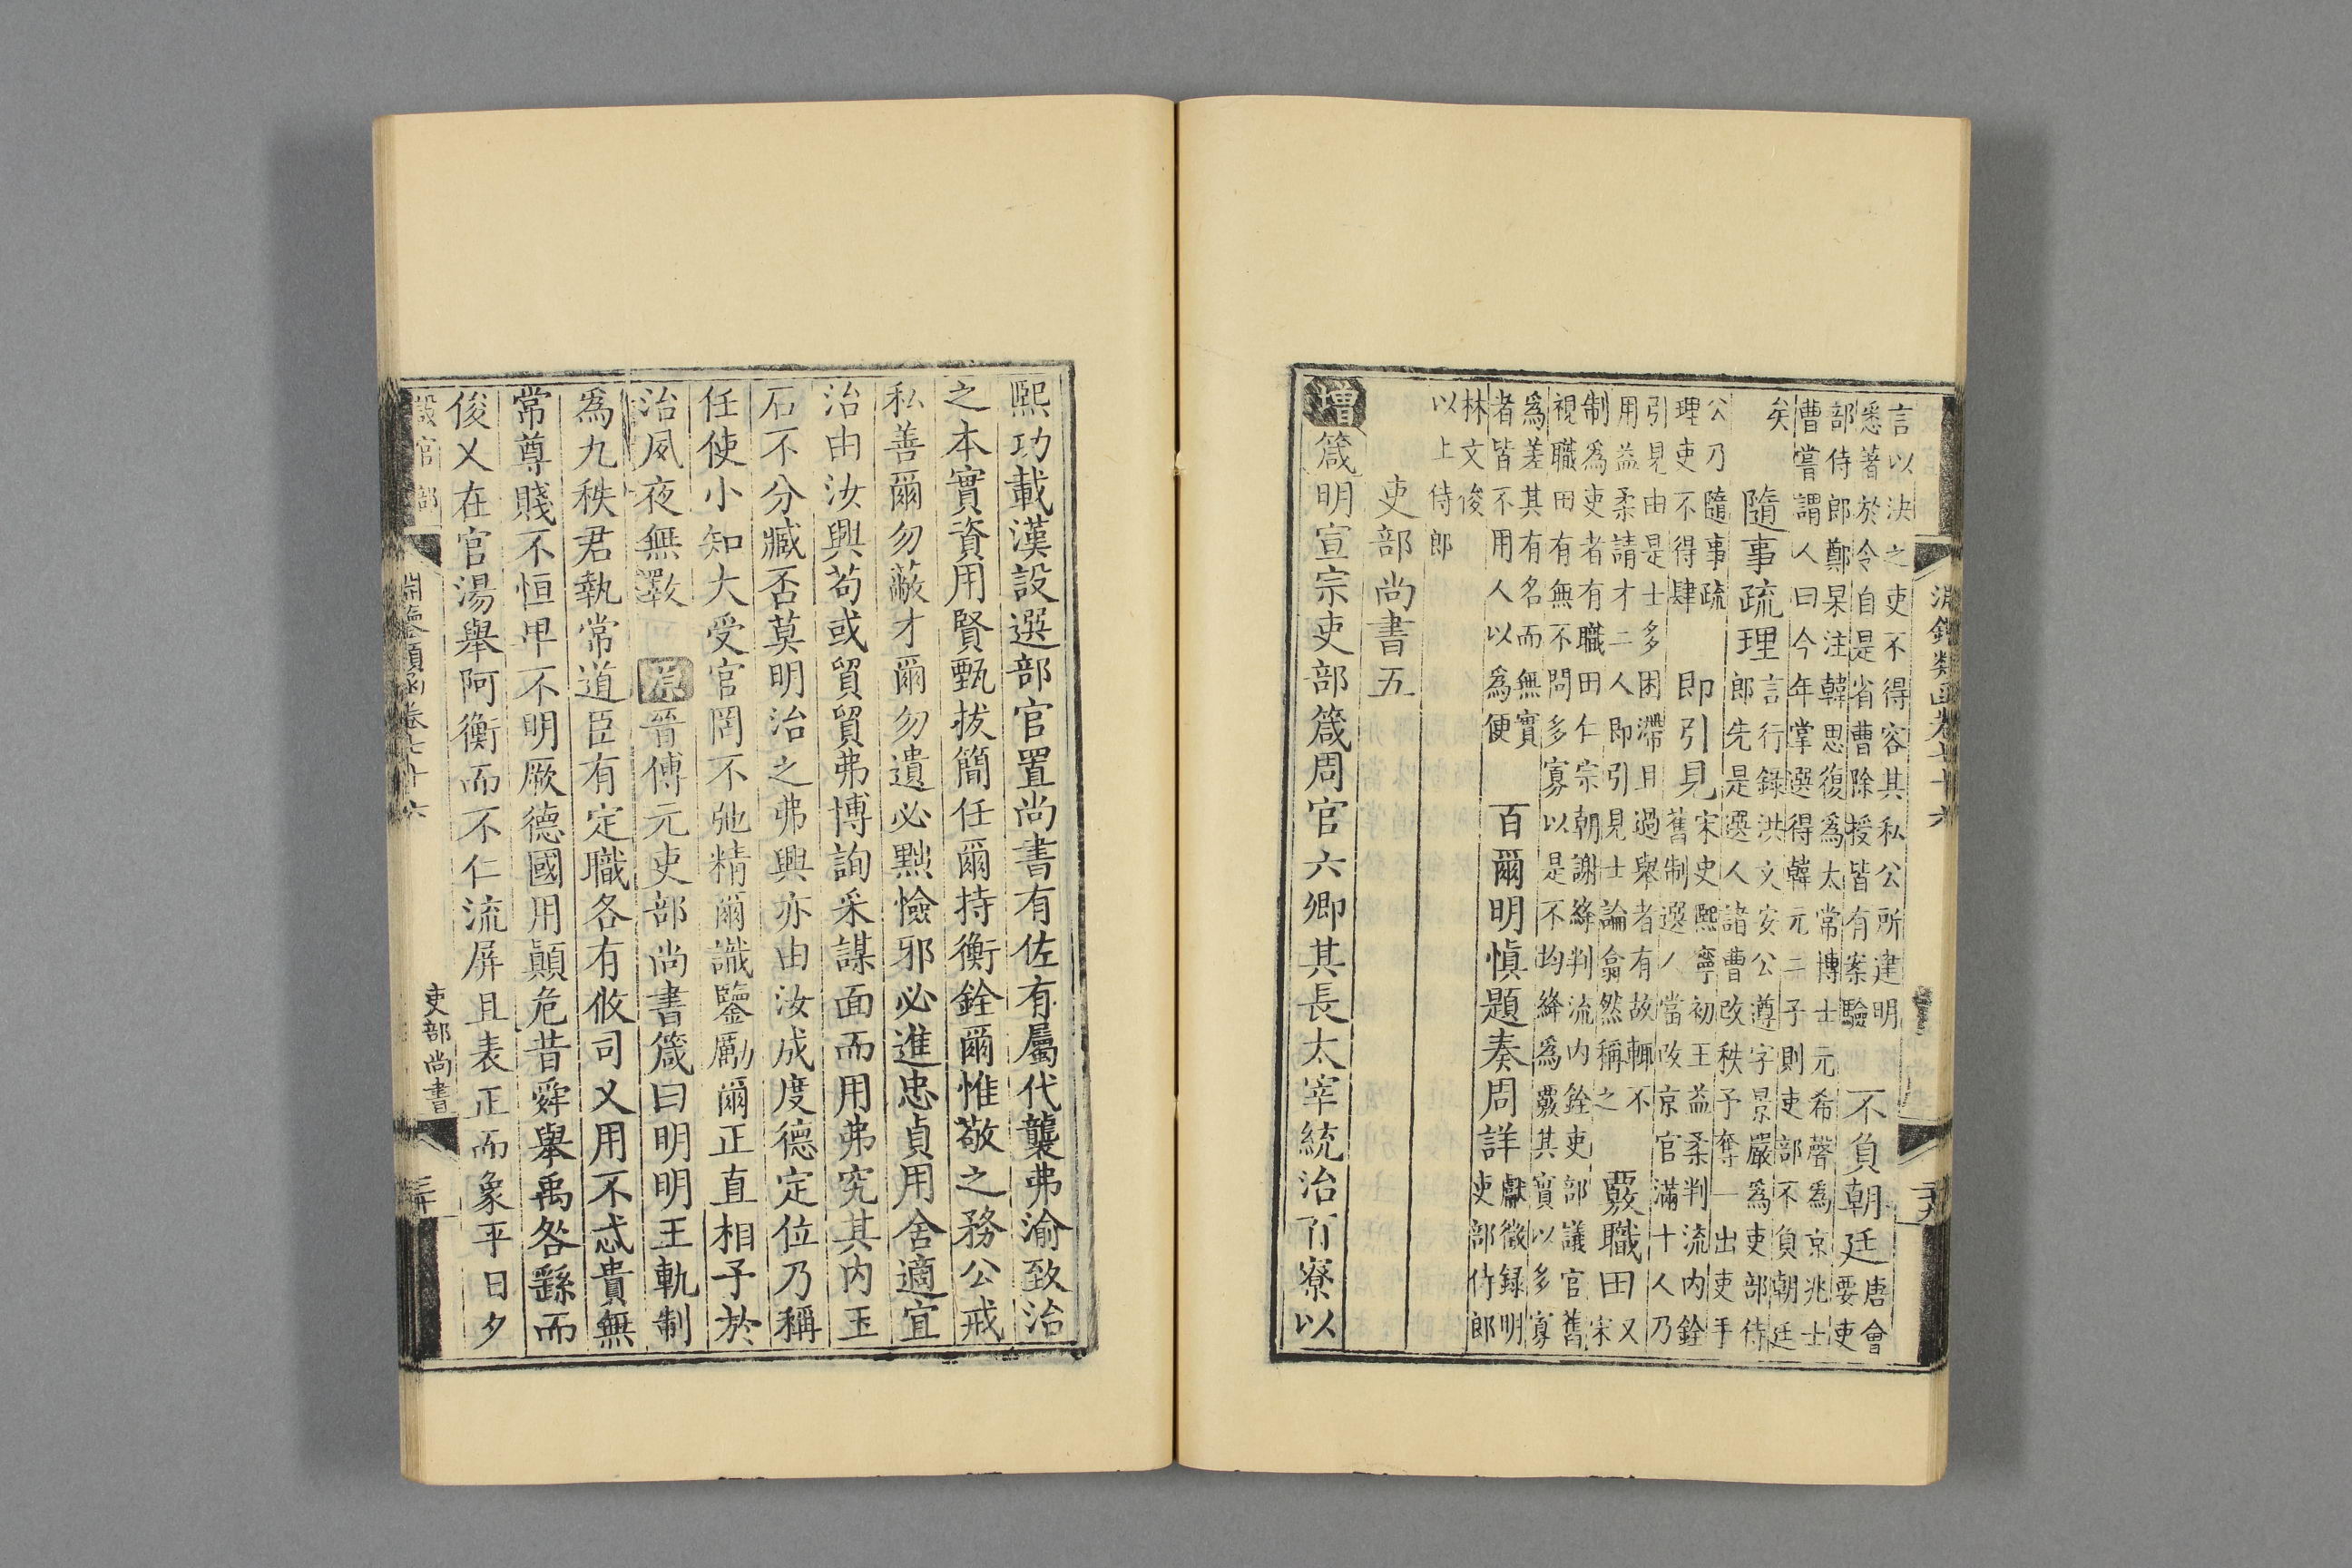 淵鑑類函卷七十六
言以決之吏不得容其私公所建明
悉著於令自是省曹除授皆有案驗
不負朝廷
唐會
要吏
部侍郎鄭杲注韓思復為太常博士元希聲為京兆士
曹嘗謂人曰今年掌選得韓元二子則吏部不負朝廷
矣
隨事疏理
言行錄洪文安公遵字景嚴為吏部侍
郎先是選人諸曹改秩予奪一出吏手
公乃隨事疏
理吏不得肆
即引見
宋史熙寧初王益柔判流内銓
舊制選人當改京官滿十人乃
引見由是士多困滯且過舉者有故輒不
用益柔請才二人即引見士論翕然稱之
覈職田
又
宋
制為吏者有職田仁宗朝謝絳判流内銓吏部議官舊
視職田有無不問多寡以是不均絳為覈其實以多寡
為差其有名而無實
者皆不用人以為便
百爾明慎題奏周詳
獻徵錄明
吏部侍郎
林文俊
以上侍郎
吏部尚書五
增箴明宣宗吏部箴周官六卿其長太宰統治百寮以
熙功載漢設選部官置尚書有佐有屬代襲弗渝致治
之本實資用賢甄拔簡任爾持衡銓爾惟敬之務公戒
私善爾勿蔽才爾勿遺必黜憸邪必進忠貞用舍適宜
治由汝興苟或貿貿弗博詢釆謀面而用弗究其内玉
石不分臧否莫明治之弗興亦由汝成度德定位乃稱
任使小知大受官罔不弛精爾識鑒勵爾正直相予於
治夙夜無斁 原晉傅元吏部尚書箴曰明明王軌制
為九秩君執常道臣有定職各有攸司又用不忒貴無
常尊賤不恒卑不明厥德國用顛危昔舜舉禹咎繇而
俊乂在官湯舉阿衡而不仁流屏且表正而象平日夕
設官部 淵鑑類函卷七十六 吏部尚書